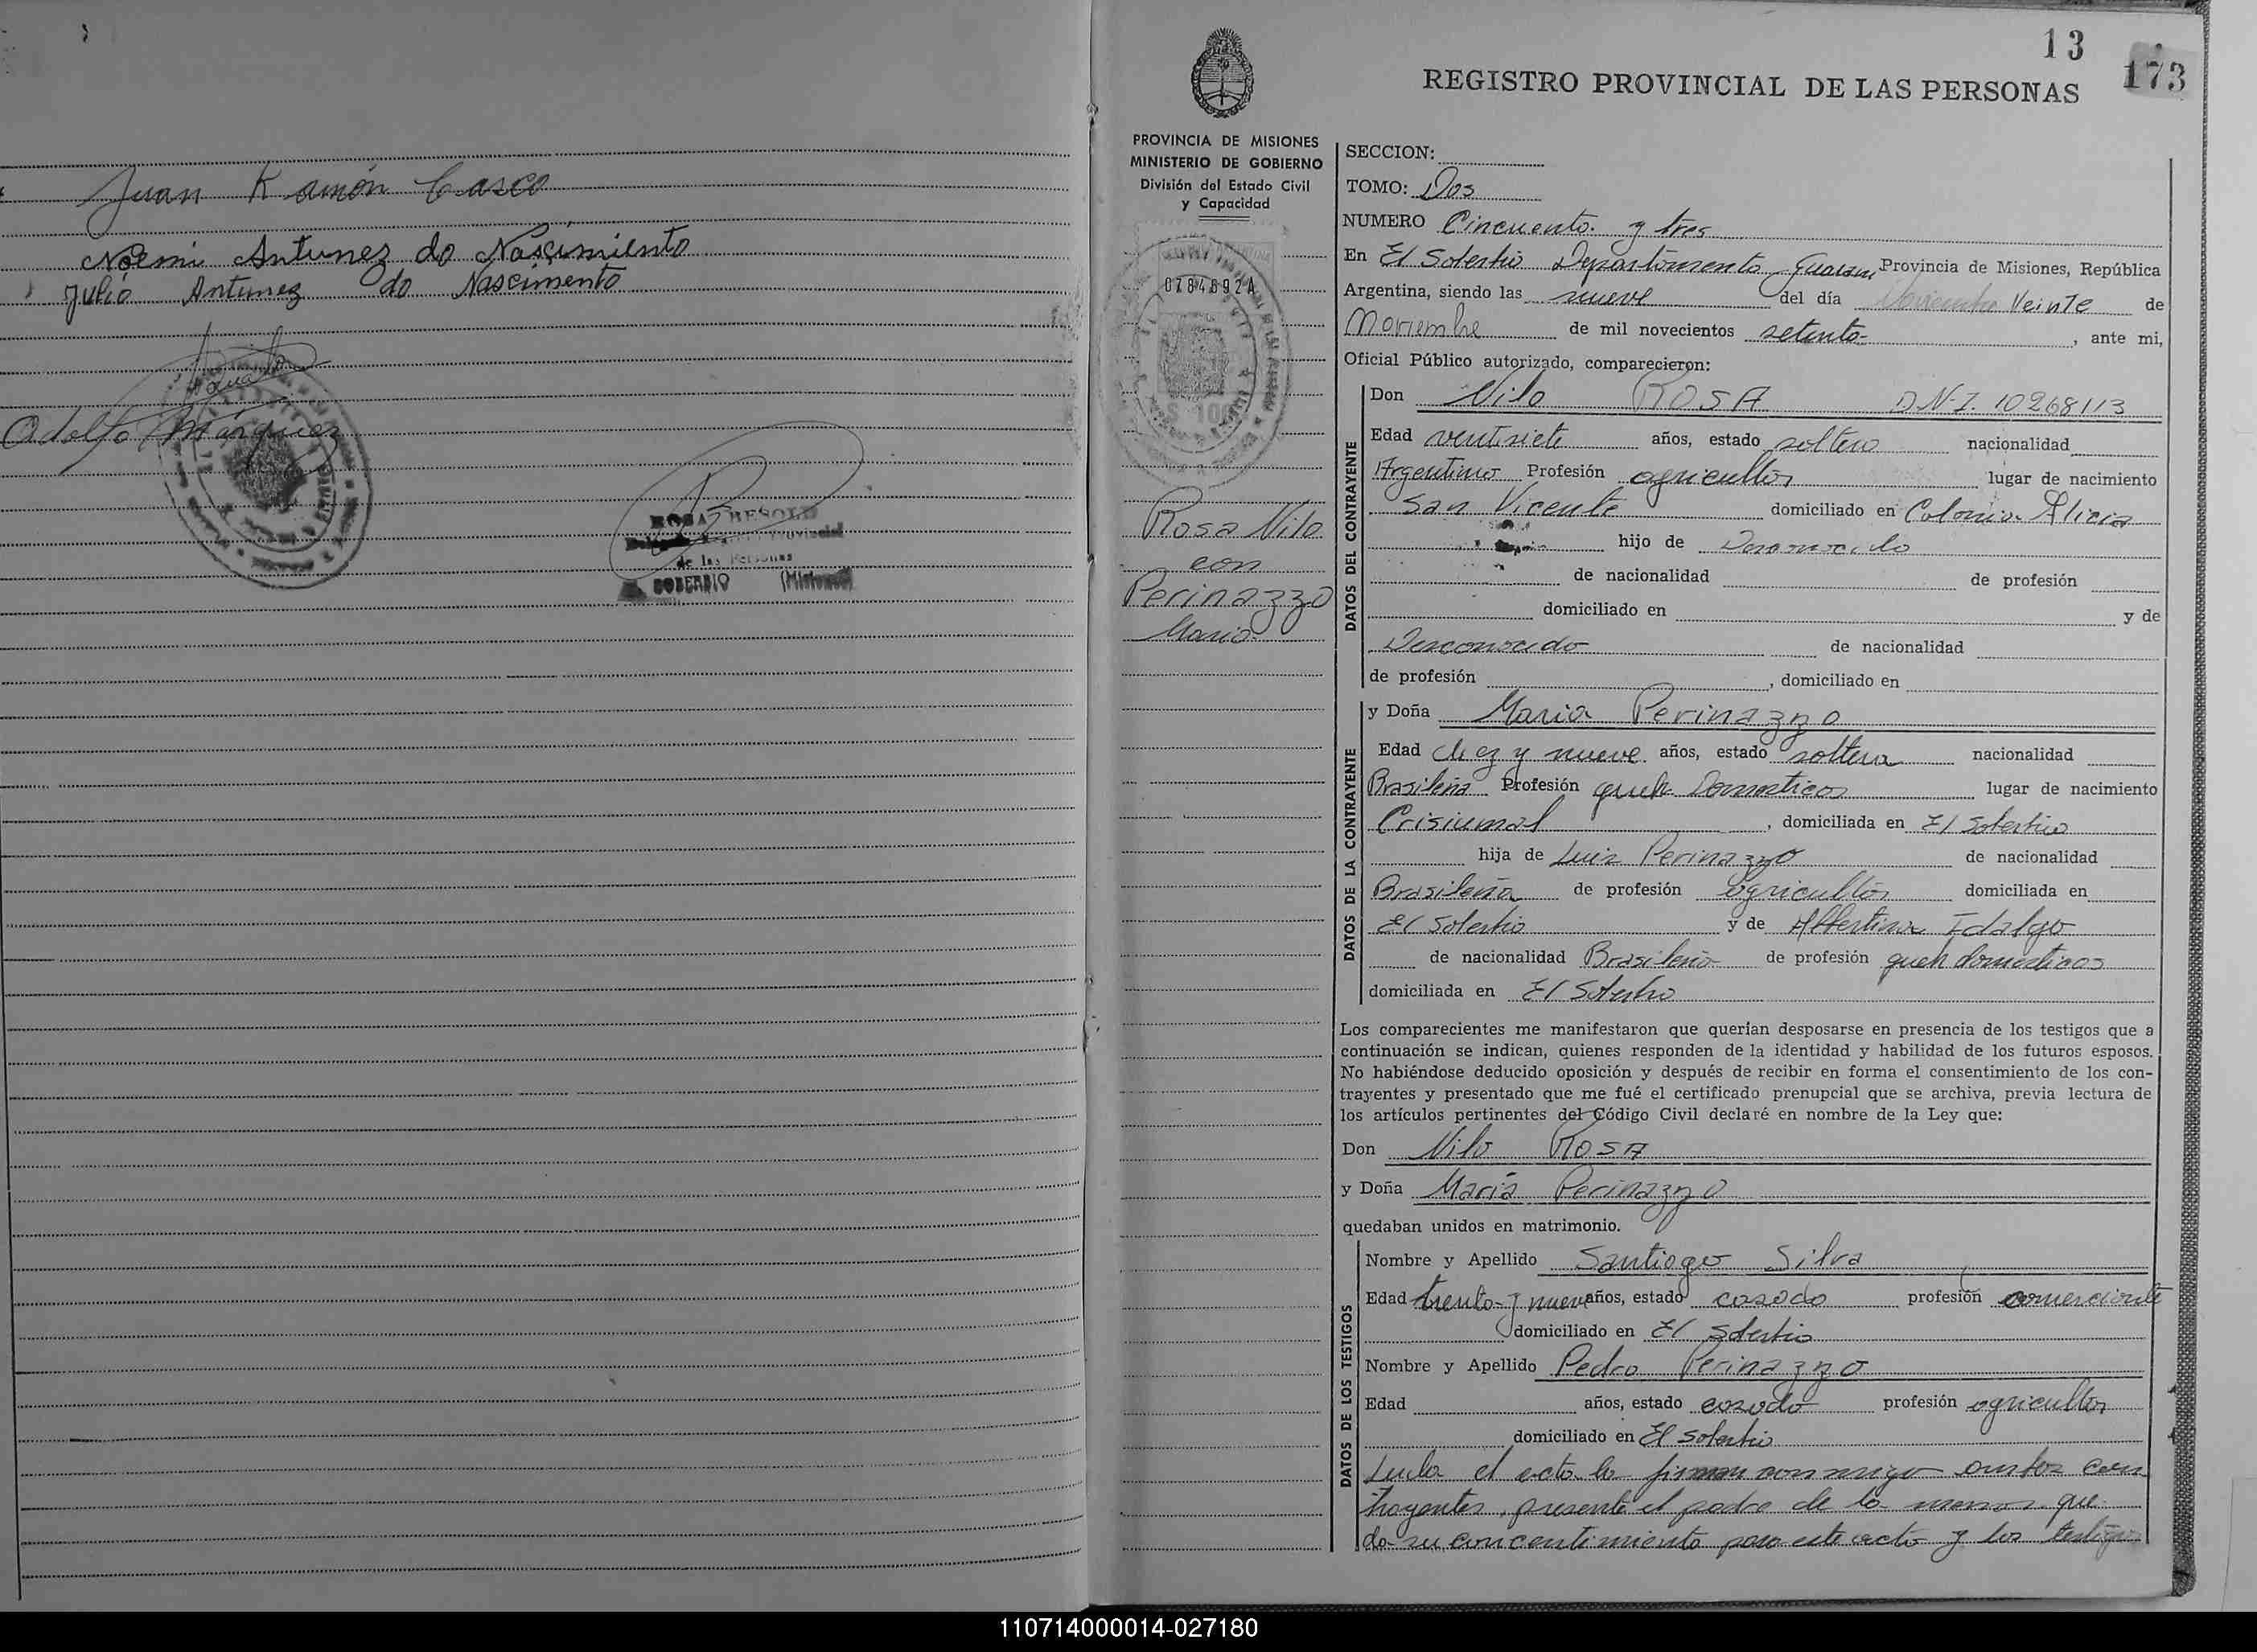 Juan Ramón Casco
Noemi Antunez do Nascimiento
Julio Antunez do Nascimento
Adolfo Márquez
ROSA BESOLD
Provincial
de las Personas
SOBERBIO (Misiones)
13
173
REGISTRO PROVINCIAL DE LAS PERSONAS
PROVINCIA DE MISIONES
MINISTERIO DE GOBIERNO
División del Estado Civil
y Capacidad
0784692A
$ 100
Rosa Nilo
con
Perinazzo
Maria
SECCION:
TOMO: Dos
NUMERO Cincuenta y tres
En El Soberbio Departamento Guarani Provincia de Misiones, República
Argentina, siendo las nueve del día Noviembre Veinte de
Noviembre de mil novecientos setenta , ante mi,
Oficial Público autorizado, comparecieron:
DATOS DEL CONTRAYENTE
Don Nilo ROSA D.N.I. 10268113
Edad ventisiete años, estado soltero nacionalidad
Argentino Profesión agricultor lugar de nacimiento
San Vicente domiciliado en Colonia Alicia
hijo de Desconocido
de nacionalidad de profesión
domiciliado en y de
Desconocido de nacionalidad
de profesión , domiciliado en
DATOS DE LA CONTRAYENTE
y Doña Maria Perinazzo
Edad diez y nueve años, estado soltera nacionalidad
Brasileña Profesión queh. Domesticos lugar de nacimiento
Crisiumal , domiciliada en El Soberbio
hija de Luiz Perinazzo de nacionalidad
Brasileña de profesión agricultor domiciliada en
El Soberbio y de Albertina Idalgo
de nacionalidad Brasileña de profesión queh domesticos
domiciliada en El Soberbio
Los comparecientes me manifestaron que querían desposarse en presencia de los testigos que a
continuación se indican, quienes responden de la identidad y habilidad de los futuros esposos.
No habiéndose deducido oposición y después de recibir en forma el consentimiento de los con-
trayentes y presentado que me fué el certificado prenupcial que se archiva, previa lectura de
los artículos pertinentes del Código Civil declaré en nombre de la Ley que:
Don Nilo ROSA
y Doña Maria Perinazzo
quedaban unidos en matrimonio.
DATOS DE LOS TESTIGOS
Nombre y Apellido Santiago Silva
Edad trenta y nueve años, estado casado profesión comerciante
domiciliado en El Soberbio
Nombre y Apellido Pedro Perinazzo
Edad años, estado casado profesión agricultor
domiciliado en El Soberbio
Leida el acta la firman conmigo ambos con
trayentes, presente el padre de la menor que
da su concentimiento para este acto y los testigos
110714000014-027180